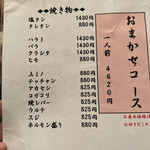 焼き物
塩タン 1430円
タレタン 880円
ハラミ 1430円
バラ 1430円
クラシタ 1430円
ヒモ 880円
上ミノ 880円
テッチャン 880円
アカセン 825円
コリコリ 825円
焼レバー 825円
ウルテ 825円
スジ 825円
ホルモン盛り 880円
おまかせコース
一人前 4620円